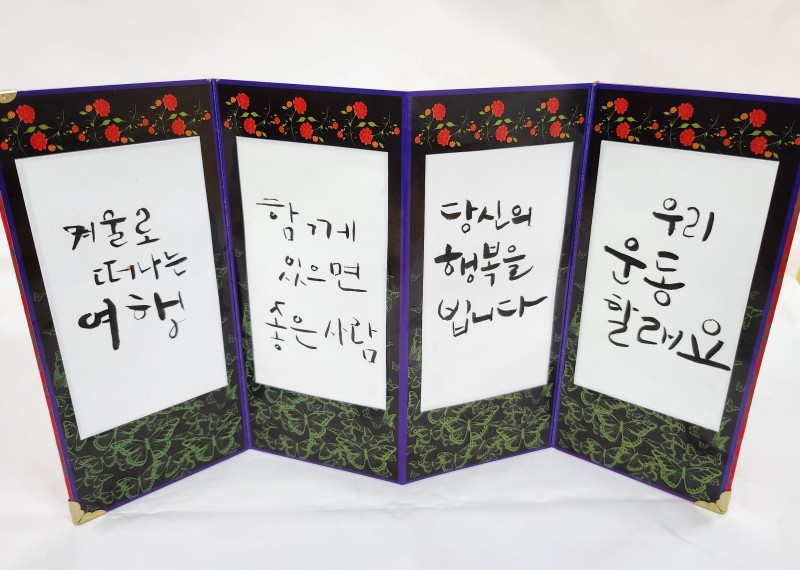 겨울로
떠나는
여행
함께
있으면
좋은 사람
당신의
행복을
빕니다
우리
운동
할래요